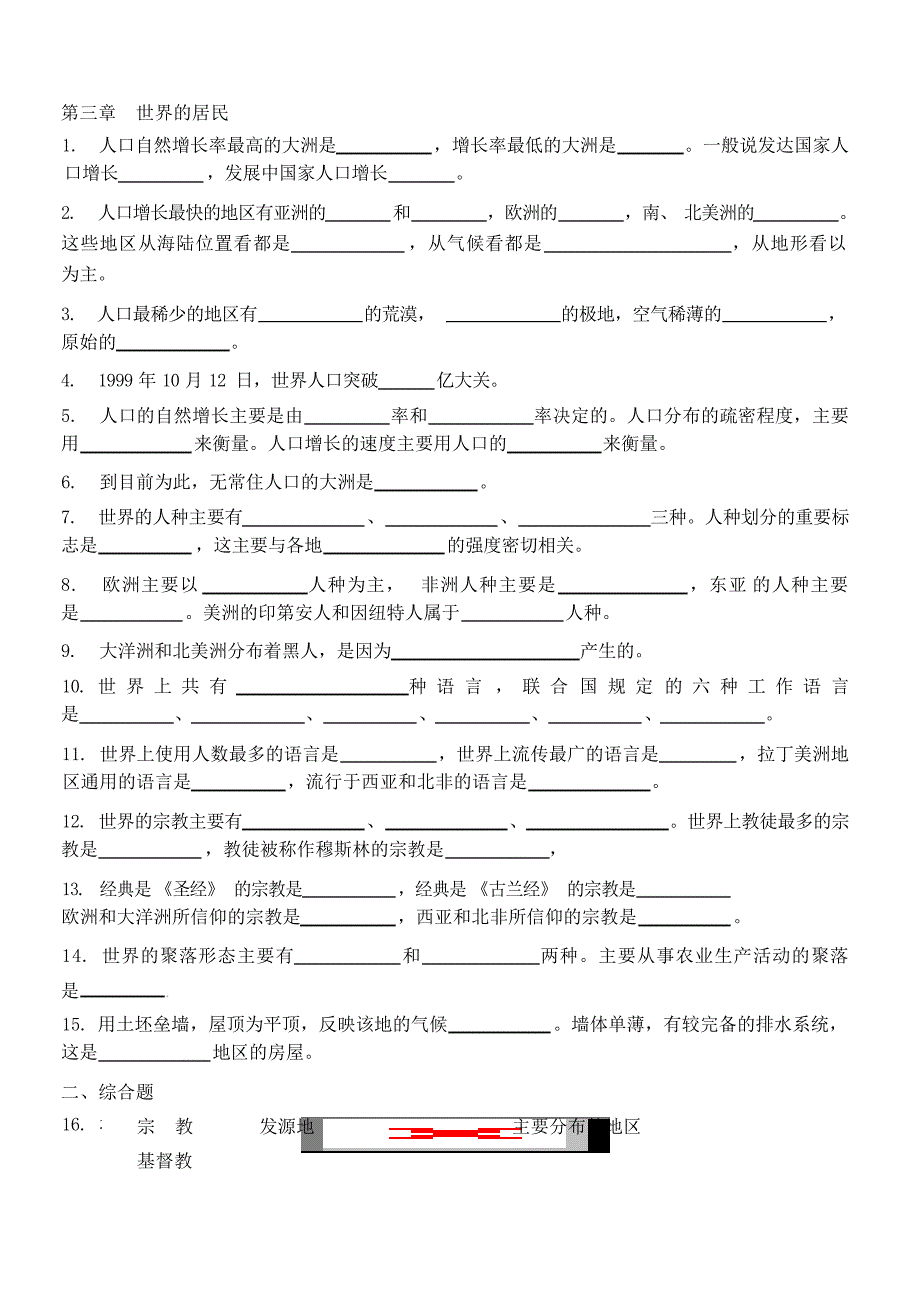 第三章 世界的居民
1. 人口自然增长率最高的大洲是__________，增长率最低的大洲是_______。一般说发达国家人
口增长_________，发展中国家人口增长_______。
2. 人口增长最快的地区有亚洲的_______和________，欧洲的_______，南、 北美洲的_________。
这些地区从海陆位置看都是____________，从气候看都是____________________，从地形看以
为主。
3. 人口最稀少的地区有___________的荒漠， ____________的极地，空气稀薄的___________，
原始的____________。
4. 1999 年 10 月 12 日，世界人口突破______亿大关。
5. 人口的自然增长主要是由_________率和___________率决定的。人口分布的疏密程度，主要
用____________来衡量。人口增长的速度主要用人口的__________来衡量。
6. 到目前为此，无常住人口的大洲是___________。
7. 世界的人种主要有_____________、____________、______________三种。人种划分的重要标
志是__________，这主要与各地_____________的强度密切相关。
8. 欧洲主要以___________人种为主， 非洲人种主要是______________，东亚 的人种主要
是___________。美洲的印第安人和因纽特人属于___________人种。
9. 大洋洲和北美洲分布着黑人，是因为____________________产生的。
10. 世界上共有__________________种语言，联合国规定的六种工作语言
是__________、____________、__________、__________、__________、___________。
11. 世界上使用人数最多的语言是__________，世界上流传最广的语言是________，拉丁美洲地
区通用的语言是__________，流行于西亚和北非的语言是_____________。
12. 世界的宗教主要有_____________、_____________、_______________。世界上教徒最多的宗
教是___________，教徒被称作穆斯林的宗教是___________，
13. 经典是 《圣经》 的宗教是__________，经典是 《古兰经》 的宗教是__________
欧洲和大洋洲所信仰的宗教是__________，西亚和北非所信仰的宗教是__________。
14. 世界的聚落形态主要有___________和____________两种。主要从事农业生产活动的聚落
是_________
15. 用土坯垒墙，屋顶为平顶，反映该地的气候___________。墙体单薄，有较完备的排水系统，
这是____________地区的房屋。
二、综合题
16. : 宗 教 发源地 主要分布 地区
基督教